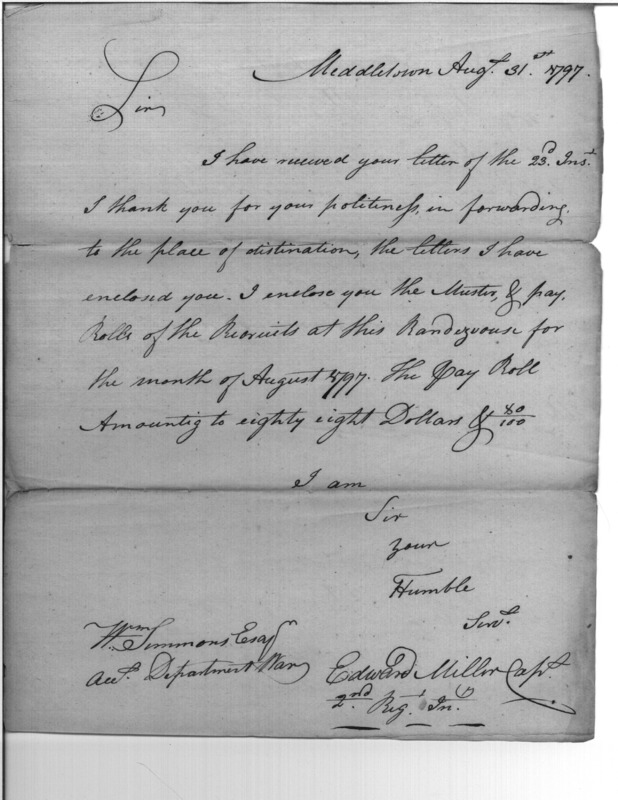 Meddletown Augt. 31st. 1797.
Sir,
I have received your letter of the 23d. Inst.
I thank you for your politeness, in forwarding,
to the place of distination, the letters I have
enclosed you. I enclose you the Muster, & pay,
Rolls of the Recruits at this Randezvouse for
the month of August 1797. The Pay Roll
Amountig to eighty eight Dollars & 80/100
I am
Sir
your
Humble
Servt.
Wm. Simmons Esqr
Acct. Department War
Edward Miller Capt.
2nd Regt. Iny.